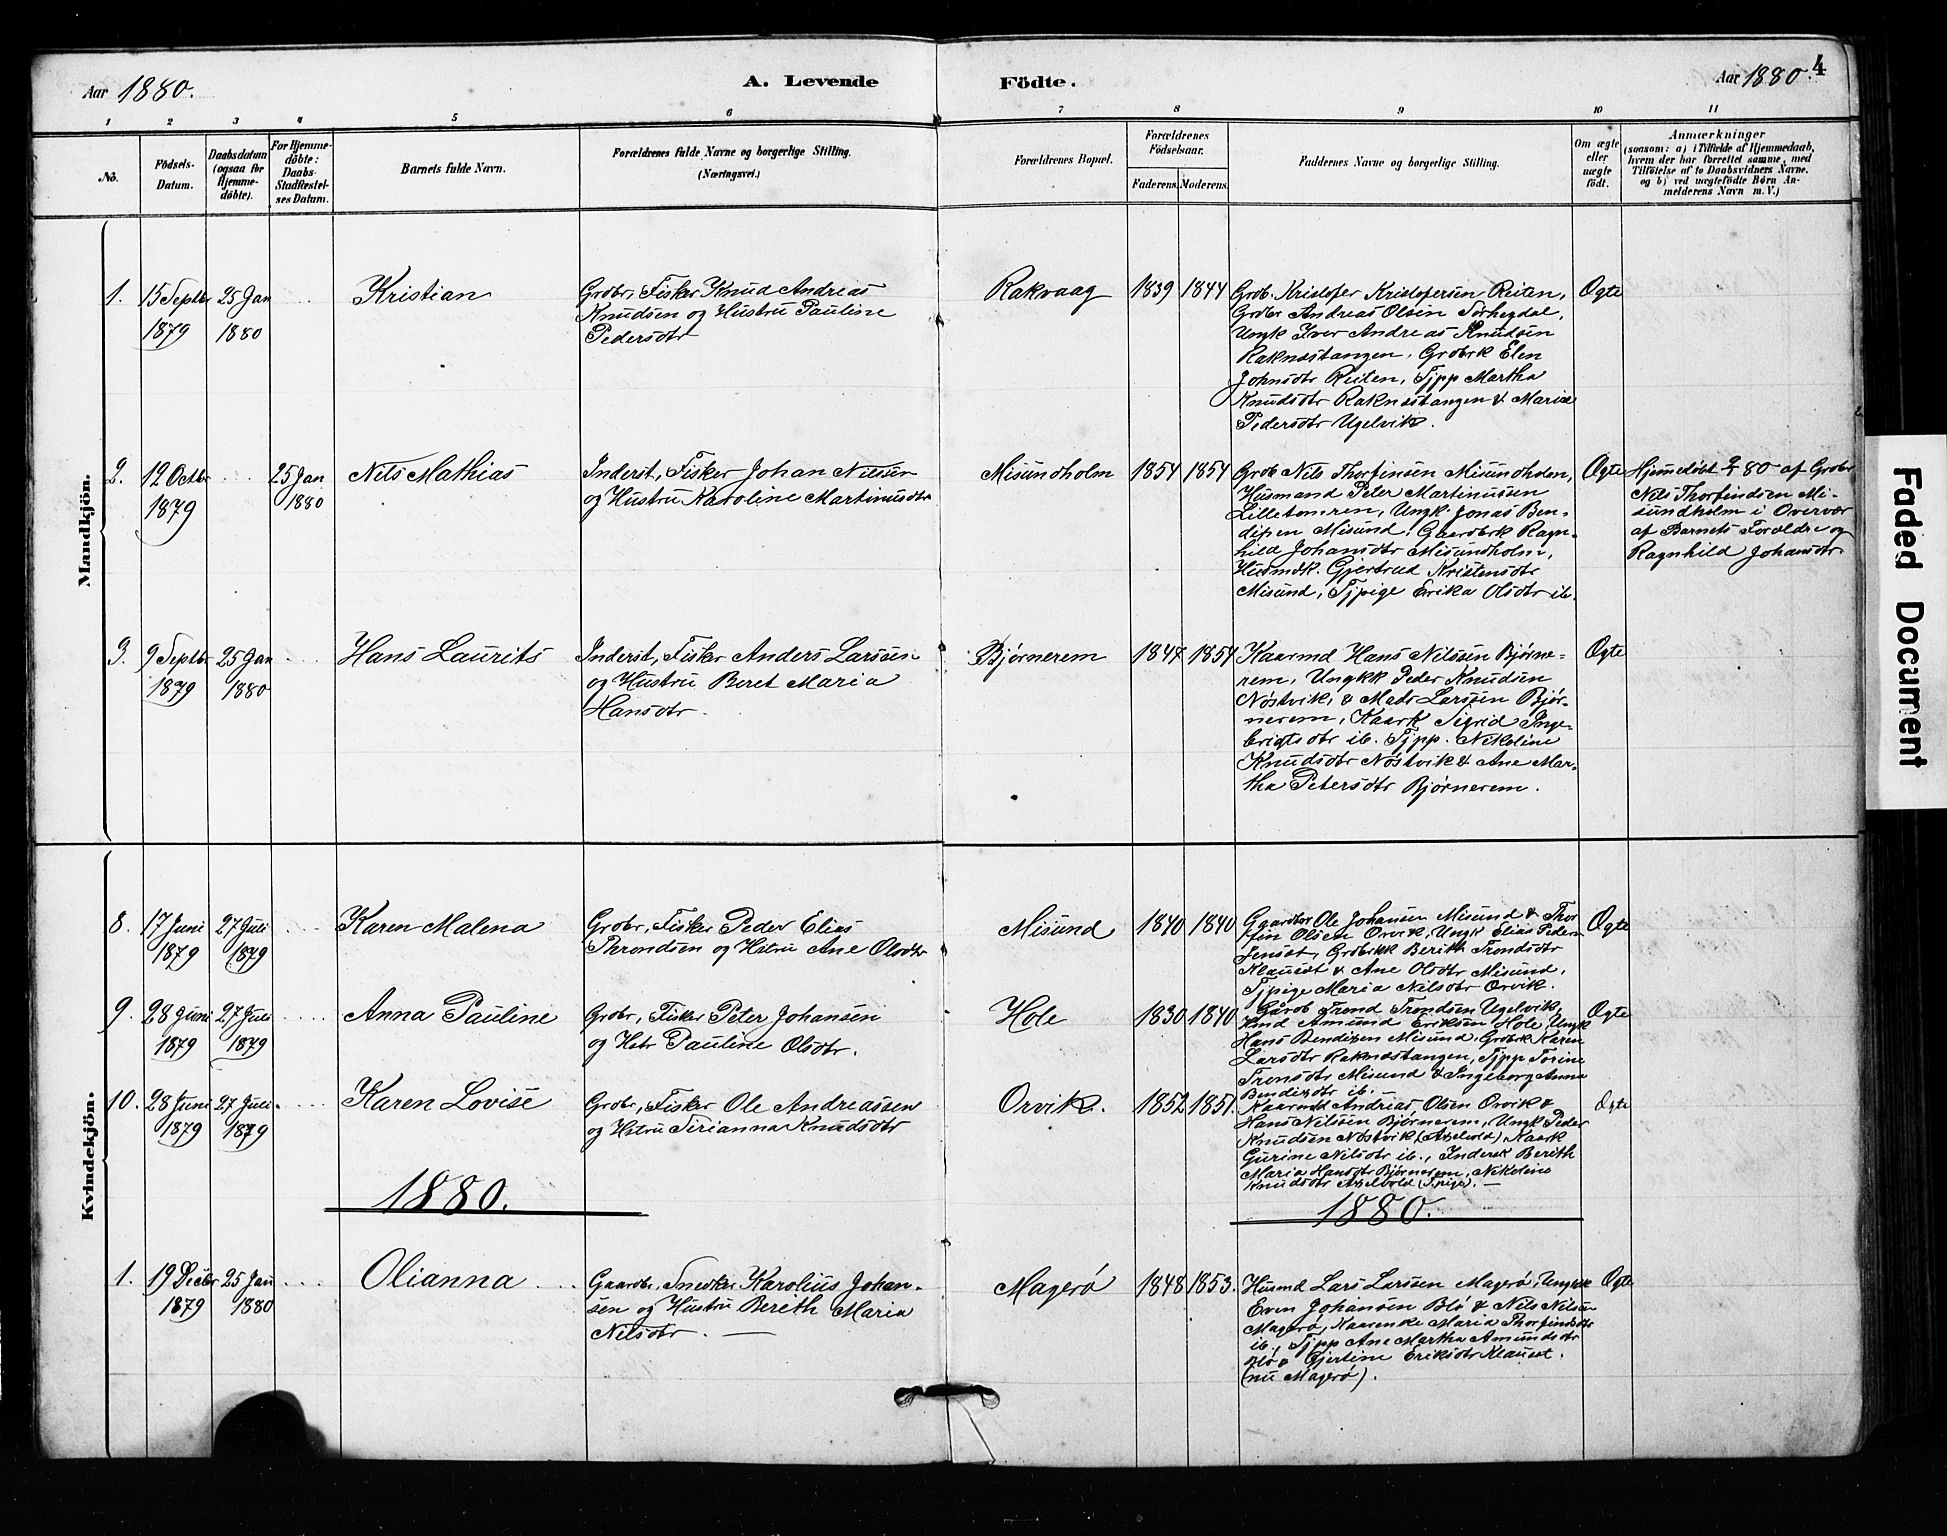 Aar 1880.
A. Levende Födte.
Aar 1880. 4
1 2 3 4 5 6 7 8 9 10 11
No.
Födsels-
Datum.
Daabsdatum
(ogsaa for
Hjemme-
döbte).
For Hjemme-
döbte:
Daabs-
Stadfæstel-
ses Datum.
Barnets fulde Navn.
Forældrenes fulde Navne og borgerlige Stilling.
(Næringsvei.)
Forældrenes Bopæl.
Forældrenes
Födselsaar.
Faderens. Moderens.
Faddernes Navne og borgerlige Stilling.
Om ægte
eller
uægte
födt.
Anmærkninger
(saasom: a) i Tilfælde af Hjemmedaab,
hvem der har forrettet samme, med
Tilföielse af to Daabsvidners Navne,
og b) ved uægtefödte Börn An-
melderens Navn m. V.)
Mandkjön.
1.
15 Septbr
1879
25 Jan
1880
Kristian
Grdbr, Fisker Knud Andreas
Knudsen og Hustru Pauline
Pedersdtr
Rakvaag
1839 1844
Grdb. Kristofer Kristofersen Reiten,
Grdbr Andreas Olsen Torhegdal,
Ungk Iver Andreas Knudsen
Raknæstangen, Grdbrk Elen
Johnsdtr Reiten, Tjpp Martha
Knudsdtr Raknæstangen & Maria
Pedersdtr Ugelvik.
Ægte
2.
12 Octbr
1879
25 Jan
1880
Nels Mathias
Inderst, Fisker Johan Nilsen
og Hustru Karoline Martinusdtr
Misundholm
1854 1854
Grdb Nils Thorfinsen Misundholm,
Husmand Peter Martinussen
Ungk. Jonas Ben-
dixen Misund, Gaardbrk Ragn-
hild Johansdtr Misundholm,
Husmdk. Gjertrud Kristensdtr
Misund, Tjpige Erika Olsdtr ib.
Ægte
Hjemedøbt 80 af Grdbr
Nils Thorfindsen Mi-
sundholm i Overvær
af Barnets Forældre og
Ragnhild Johansdtr
3.
9 Septbr
1879
25 Jan
1880
Hans Laurits
Inderst, Fisker Anders Larssen
og Hustru Beret Maria
Hansdtr.
Bjørnerem
1847 1854
Kaarmd Hans Nilsen Bjørne-
rem, Ungkk Peder Knudsen
Nøstvik, & Mads Larssen Bjør-
nerem, Kaark Sigrid Inge-
brigtsdtr ib. Tjpp. Nikoline
Knudsdtr Nøstvik & Ane Mar-
tha Petersdtr Bjørnerem.
Ægte
Kvindekjön.
8.
17 Juni
1879
27 Juli
1879
Karen Malena
Grdbr, Fisker Peder Elias
Throndsen og Hstru Ane Olsdtr
Misund
1840 1840
Gaardbr Ole Johansen Misund & Thor
fin Olsen Orvik, Ungk Elias Peder
Jensset, Grdbrkk Berith Trondsdtr
Klauset & Ane Olsdtr Misund,
Tjpige Maria Nilsdtr Orvik.
Ægte
9.
28 Juni
1879
27 Juli
1879
Anna Pauline
Grdbr, Fisker Peter Johansen
og Hstr Pauline Olsdtr.
Hole
1830 1840
Gårdb Trond Trondsen Ugelvik,
Amund Eriksen Hole, Ungk
Hans Bendixen Misund, Grdbrk Karen
Larsdtr Raknæstangen, Tjpp Torine
Tronsdtr Misund & Ingeborg Anna
Bendixdtr ib.
Ægte
10.
28 Juni
1879
27 Juli.
1879
Karen Lovise
Grdbr, Fisker Ole Andreassen
og Hstru Sirianna Knudsdtr
Orvik.
1852 1851.
Kaarmd Andreas Olsen Orvik &
Hans Nilsen Bjørnerem, Ungk Peder
Knudsen Nøstvik (Axelvold) Kaark
Gurine Nilsdtr ib., Inderstk Berith
Maria Hansdtr Bjørnerem, Nikoline
Knudsdtr Axelvold (Tjpige). —
Ægte
1880.
1880.
1.
19 Decbr
1879
25 Jan
1880
Olianna
Gaardbr, Snedker Karolius Johan-
sen og Hustru Berith Maria
Nilsdtr. —
Magerö
1848 1853.
Husmd Lars Larssen Magerö, Ungkk
Even Johansen Blö & Nils Nilsen
Magerö, Kaarenke Maria Thorfindsdtr
ib., Tjpp Ane Martha Amundsdtr
Blö & Gjertine Eriksdtr Klauset.
(nu Magerö).
Ægte
Faded Document